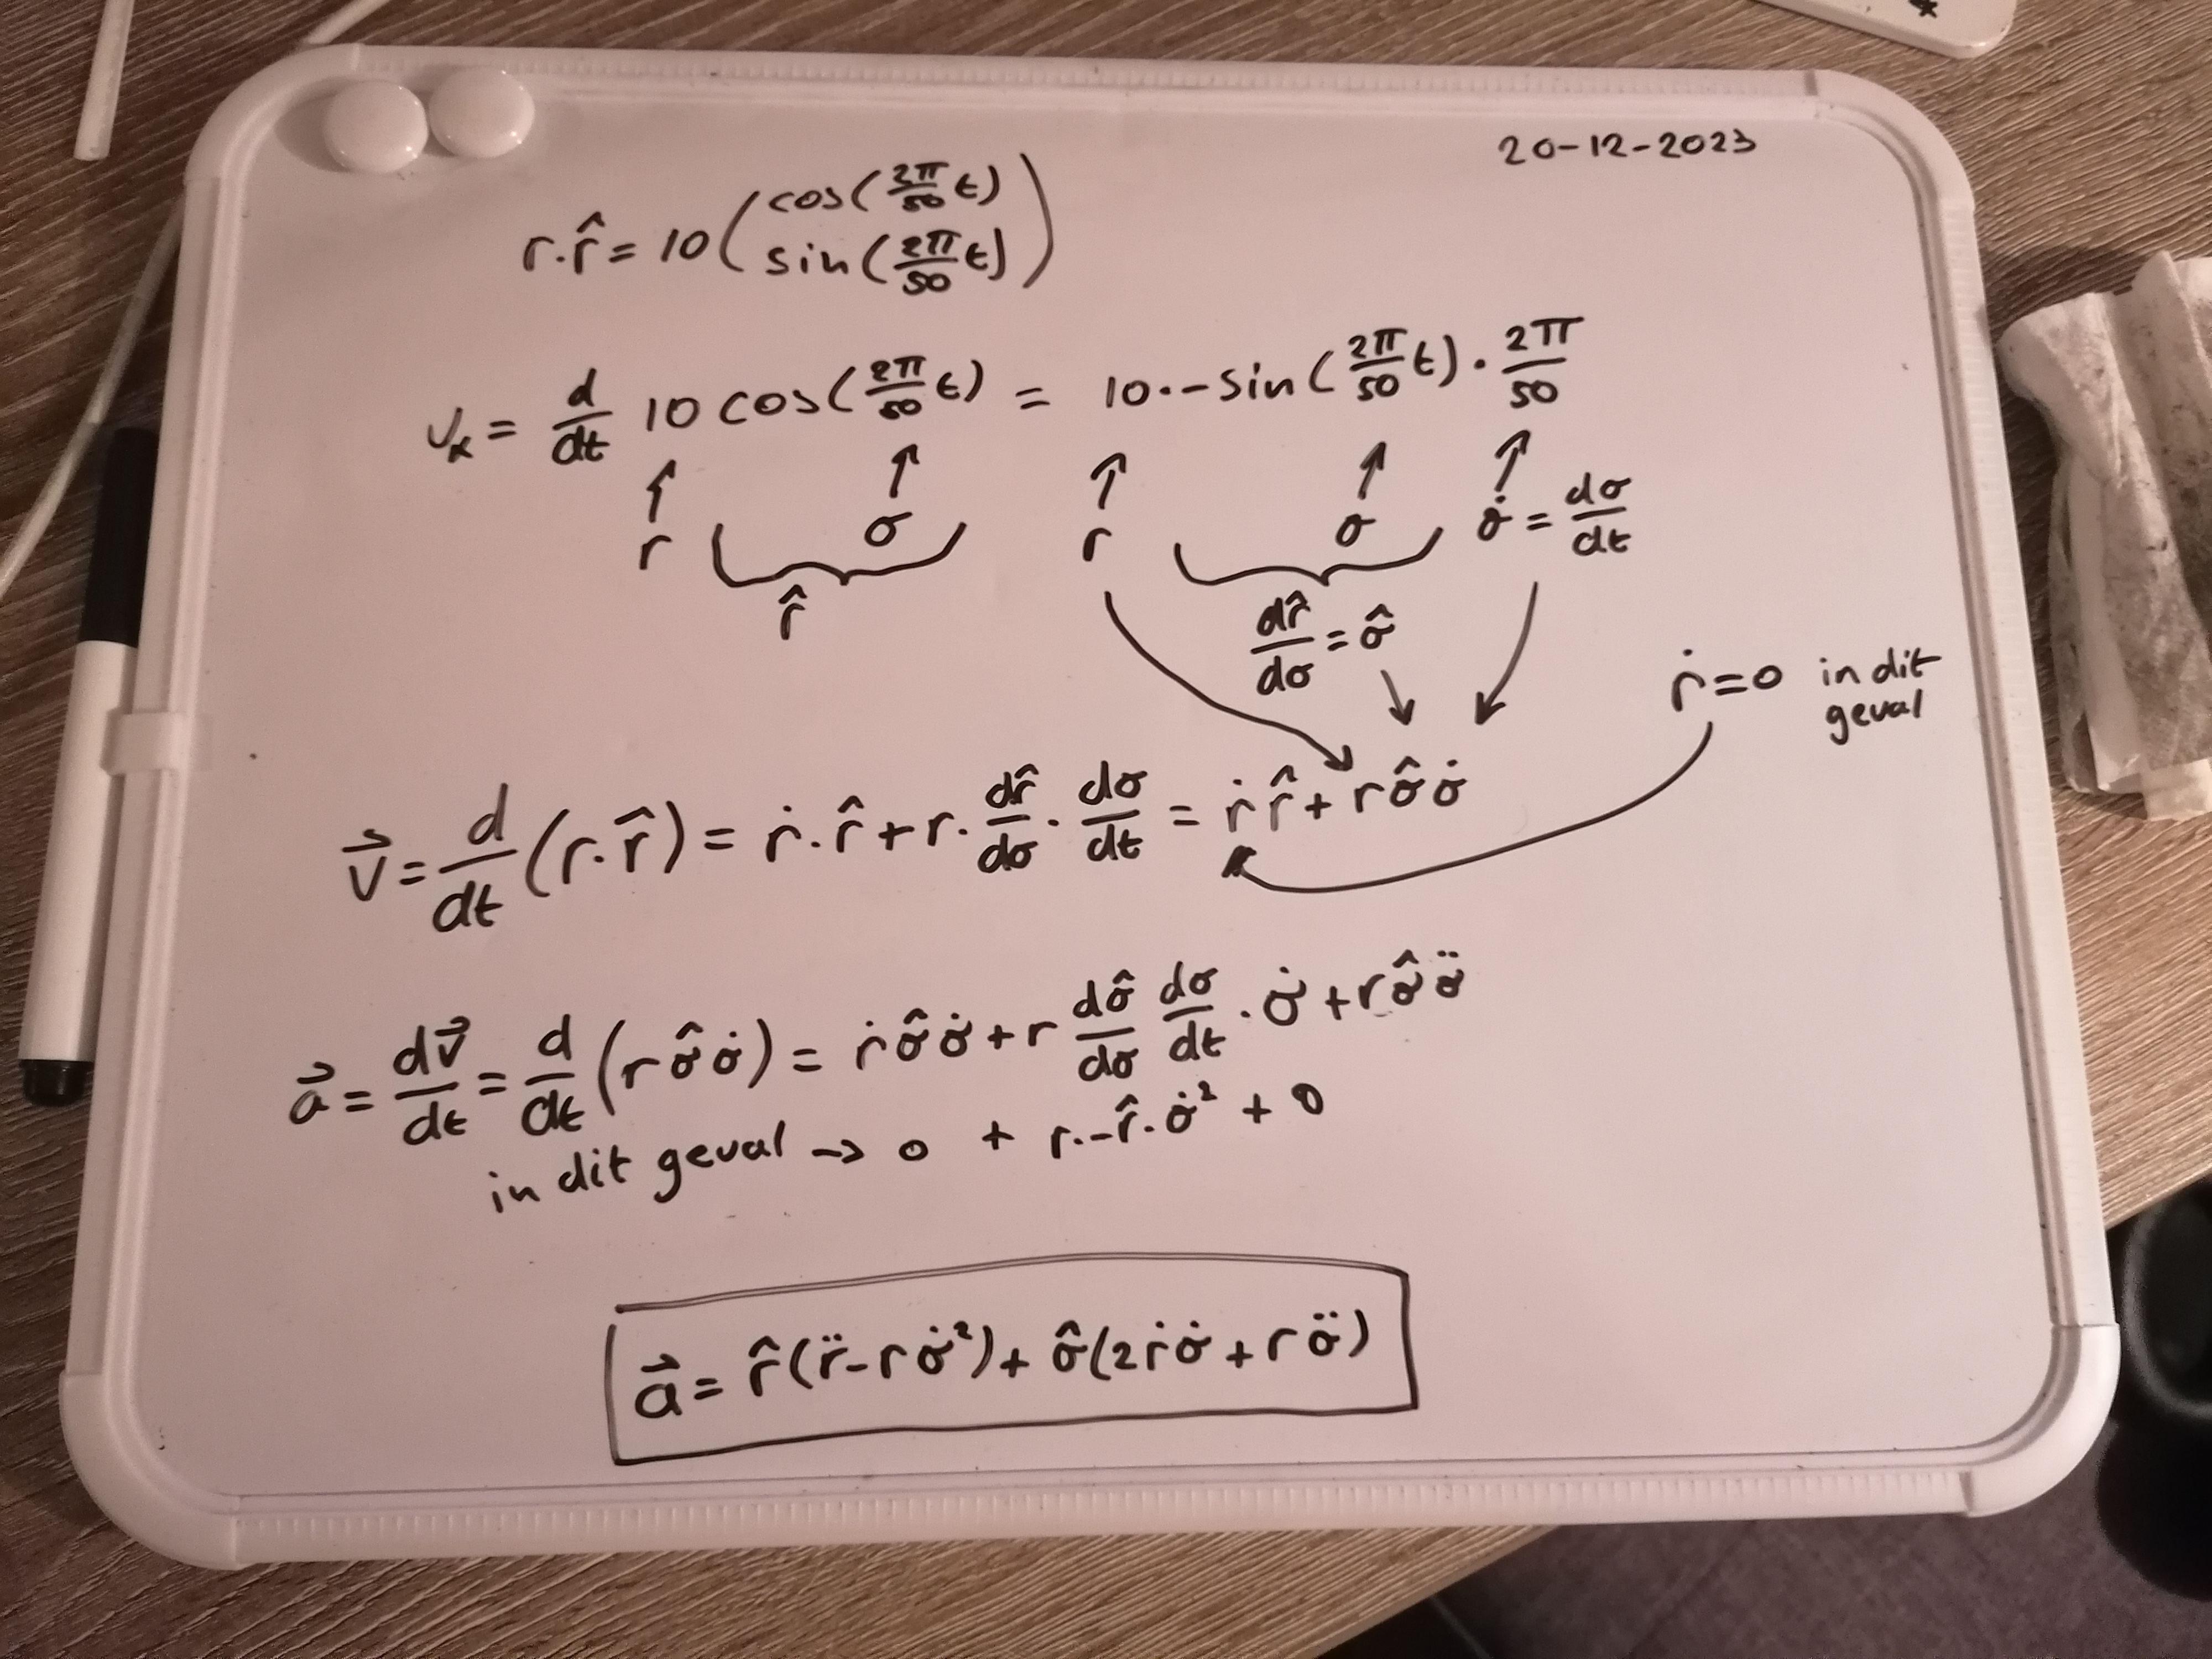 20-12-2023
r·r̂ = 10 ( cos(2π/50 t)
sin(2π/50 t) )
vₓ = d/dt 10 cos(2π/50 t) = 10·-sin(2π/50 t)·2π/50
↑ ↑ ↑ ↑ ↑
r σ r σ σ̇ = dσ/dt
r̂ dr̂/dσ = σ̂
ṙ=0 in dit
geval
v⃗ = d/dt (r·r̂) = ṙ·r̂ + r·dr̂/dσ·dσ/dt = ṙr̂ + rσ̂σ̇
a⃗ = dv⃗/dt = d/dt (rσ̂σ̇) = ṙσ̂σ̇ + r dσ̂/dσ dσ/dt·σ̇ + rσ̂σ̈
in dit geval → 0 + r·-r̂·σ̇² + 0
a⃗ = r̂(r̈-rσ̇²) + σ̂(2ṙσ̇ + rσ̈)